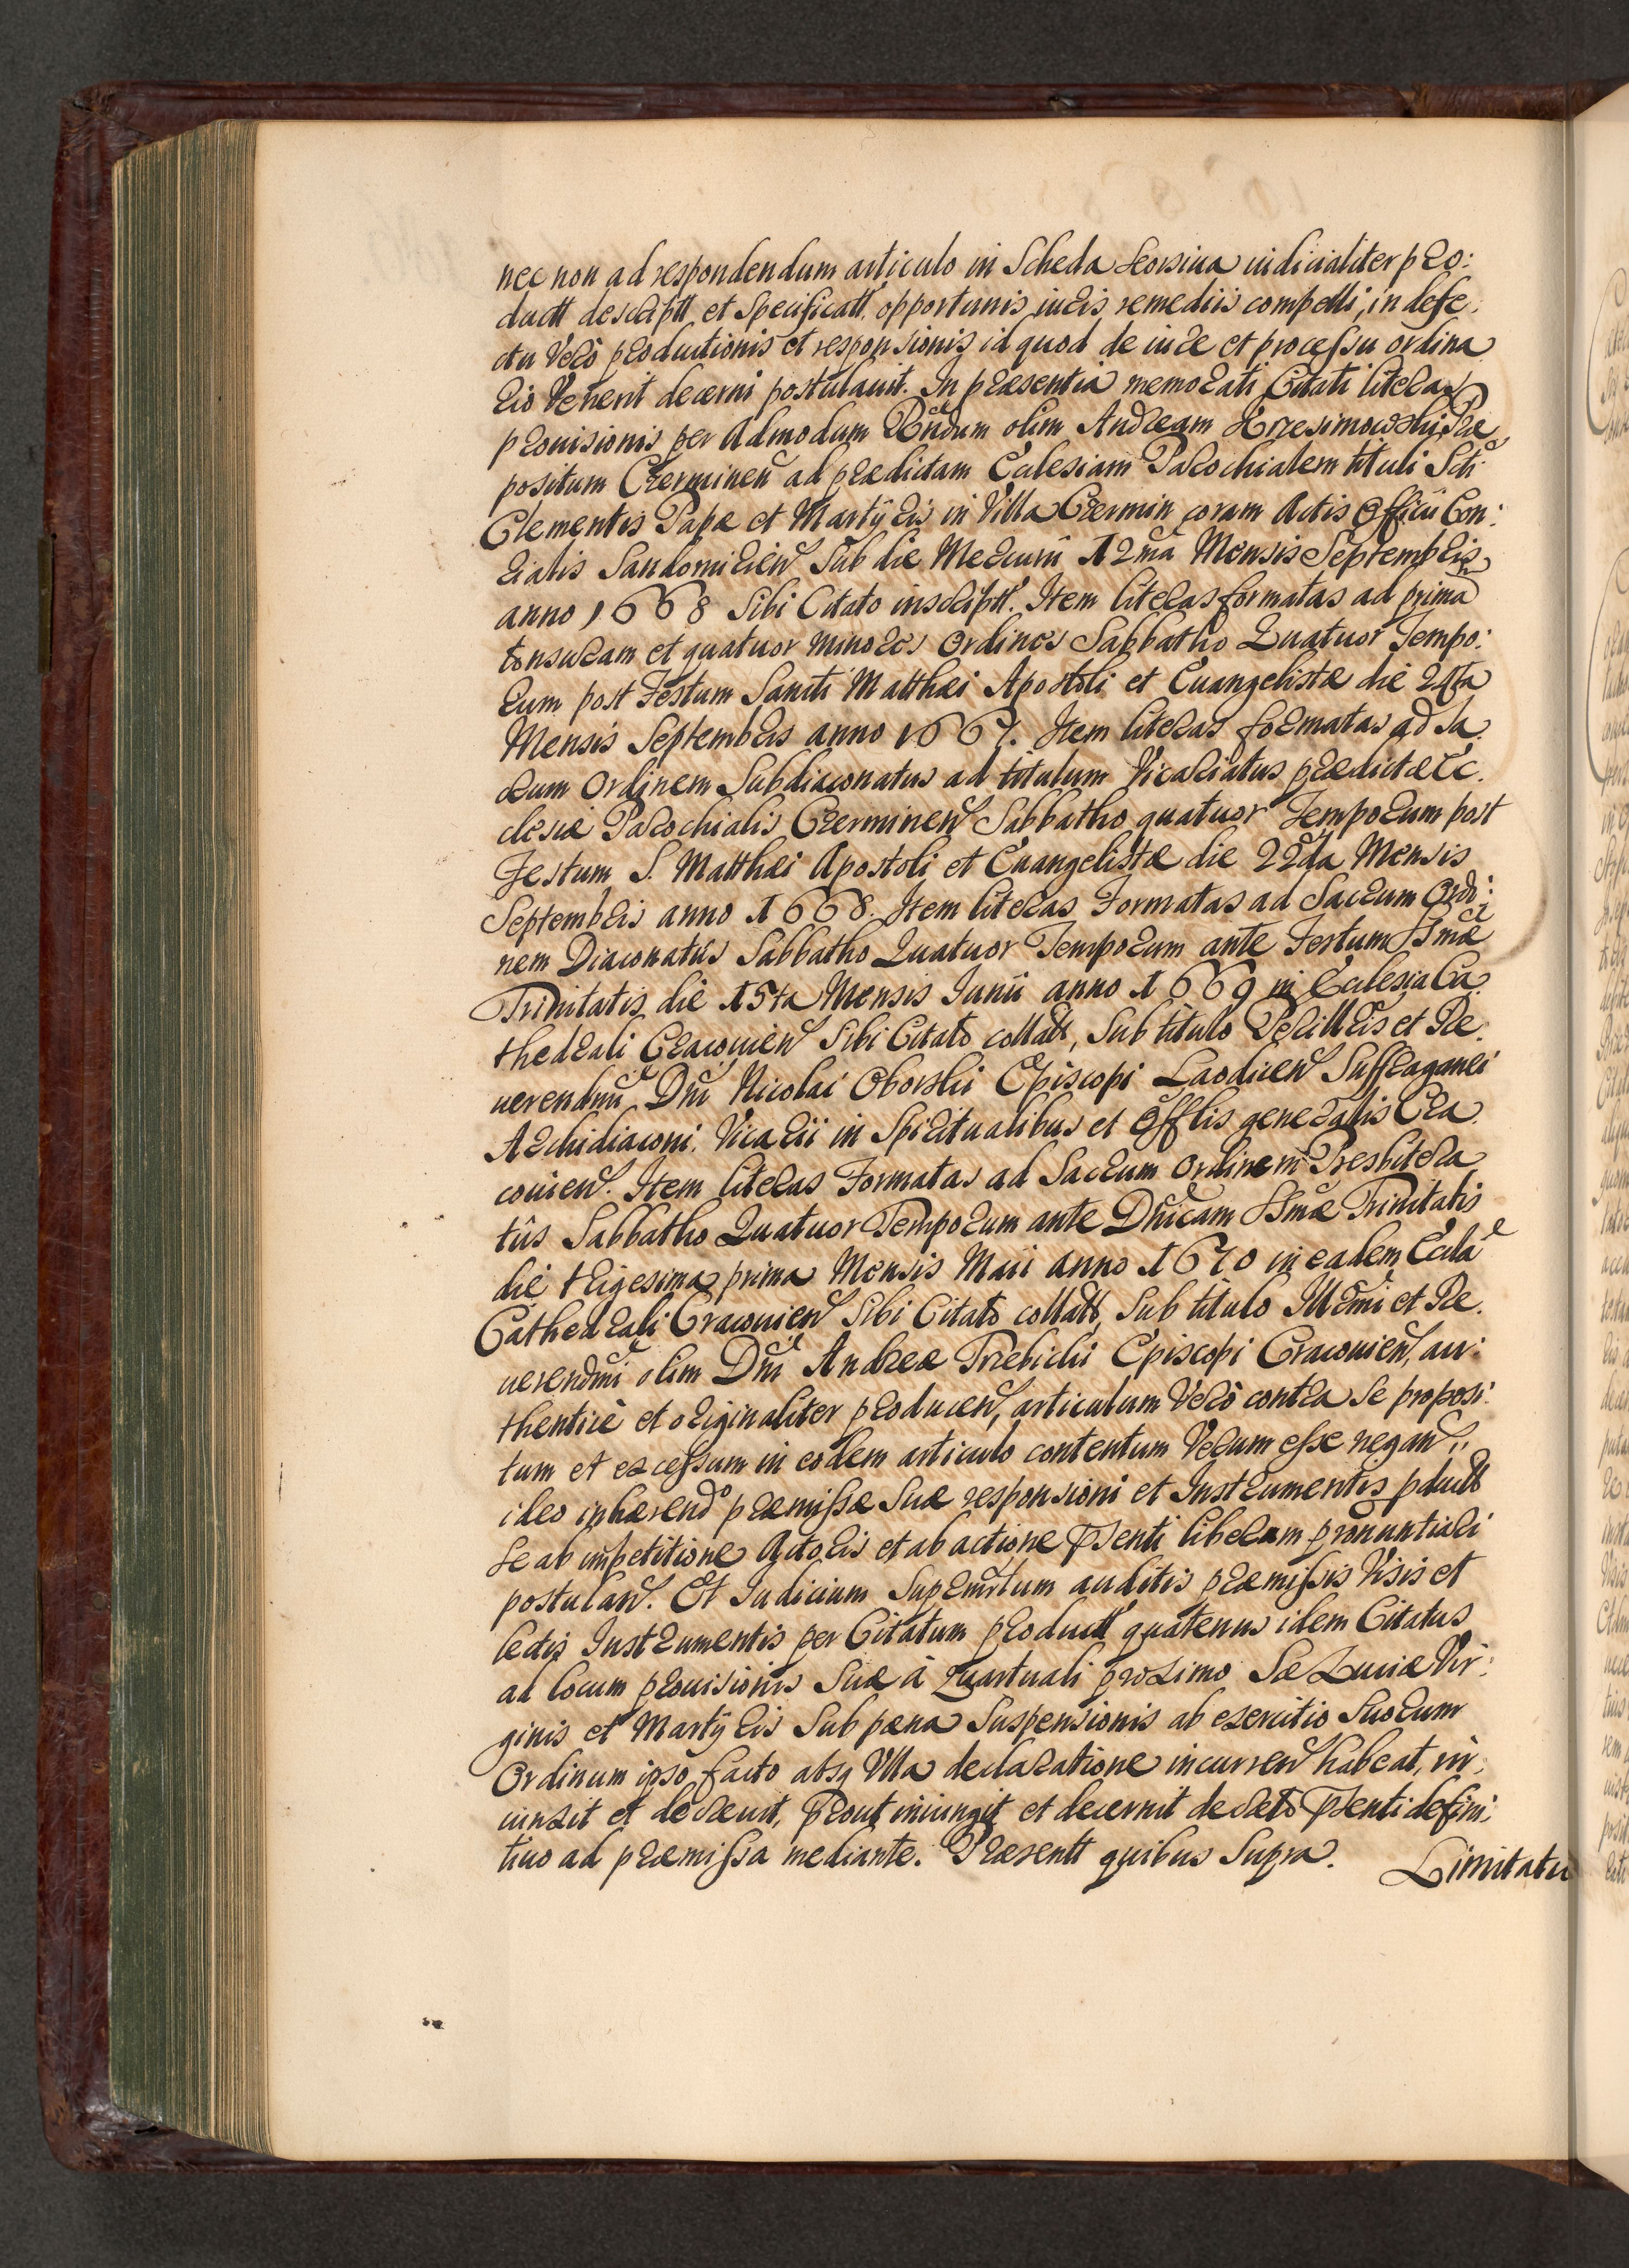 nec non ad respondendum articulo in Scheda seorsiva iudicialiter pro:
ductt descriptt et specificatt, opportunis iuris remediis compelli, in defe.
ctu Verò productionis et responsionis id quod de iure et processu ordina
rio Venerit decerni postulauit. In præsentia memorati Citati literas
prouisionis per Admodum Rndum olim Andream Krzesimowski Præ
positum Czerminen ad prædictam Ecclesiam Parochialem tituli Scti
Clementis Papæ et Martyris in Villa Czermin coram Actis Officii Con:
rialis Sandomirien Sub die Mercurii 12ma Mensis Septembris
anno 1668 Sibi Citato inscriptt. Item literas formatas ad prima
tonsuram et quatuor minores Ordines Sabbatho Quatuor Tempo:
rum post Festum Sancti Matthæi Apostoli et Euangelistæ die 24ta
Mensis Septembris anno 1667. Item literas formatas ad Sa
crum Ordinem Subdiaconatus ad titulum Vicariatus prædictæ Ec.
clesiæ Parochialis Czerminen Sabbatho quatuor Temporum post
Festum S. Matthæi Apostoli et Euangelistæ die 22da Mensis
Septembris anno 1668. Item literas Formatas ad Sacrum Ordi:
nem Diaconatûs Sabbatho Quatuor Temporum ante Festum SSmæ
Trinitatis die 15ta Mensis Iunii anno 1669 in Ecclesia Ca
thedrali Cracouien Sibi Citato collatt, Sub titulo Perillris et Re
uerendmi Dni Nicolai Oborski Episcopi Laodicen Suffraganei
Archidiaconi, Vicarii in Spiritualibus et Offlis generalis Cra
couien. Item literas Formatas ad Sacrum Ordinem Presbitera
tûs Sabbatho Quatuor Temporum ante Dnicam SSmæ Trinitatis
die trigesima prima Mensis Maii anno 1670 in eadem Eccla
Cathedrali Cracouien Sibi Citato collatt, Sub titulo Illrmi et Re.
uerendmi olim Dni Andreæ Trzebicki Episcopi Cracouien, au:
thenticè et originaliter producen, articulum Verò contra se proposi:
tum et excessum in eodem articulo contentum Verum esse negan,,
ideo inhærendo præmissæ Suæ responsioni et Instrumentis pductt
se ab impetitione Actoris et ab actione psenti liberum pronuntiari
postulan. Et Iudicium Supemrtum auditis præmissis Visis et
lectis Instrumentis per Citatum productt quatenus idem Citatus
ad locum prouisionis Suæ à Quartuali proximo Sæ Luciæ Vir:
ginis et Martyris Sub pæna Suspensionis ab exercitio Suorum
Ordinum ipso facto absq Vlla declaratione incurren habeat, in:
iunxit et decreuit, prout iniungit et decernit decreto psenti defini:
tiuo ad præmissa mediante. Præsentt quibus Supra.
Limitatu